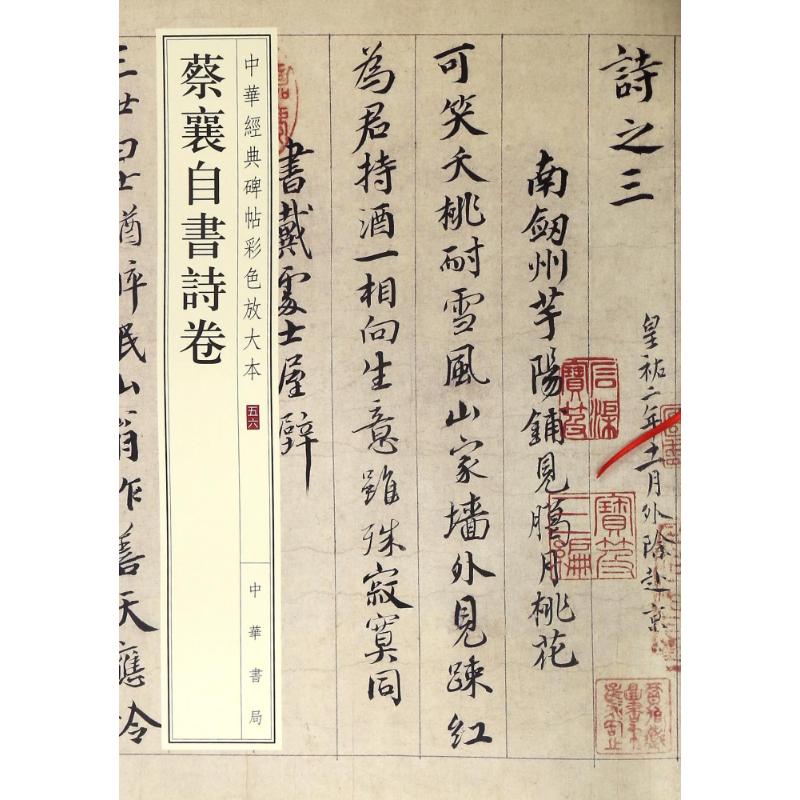 詩之三
皇祐二年十一月外除赴京
南劔州芋陽鋪見臘月桃花
可笑夭桃耐雪風山家墻外見踈紅
為君持酒一相向生意雖殊寂寞同
書戴處士屋壁
三世白士猶醉眠山翁作善天應
中華經典碑帖彩色放大本
五六
蔡襄自書詩卷
中華書局